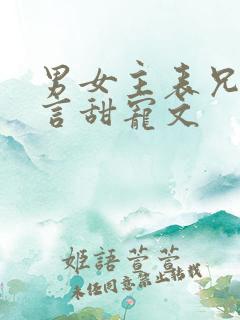 男女主表兄
言甜寵文
姬語萱萱
未经同意禁止转载